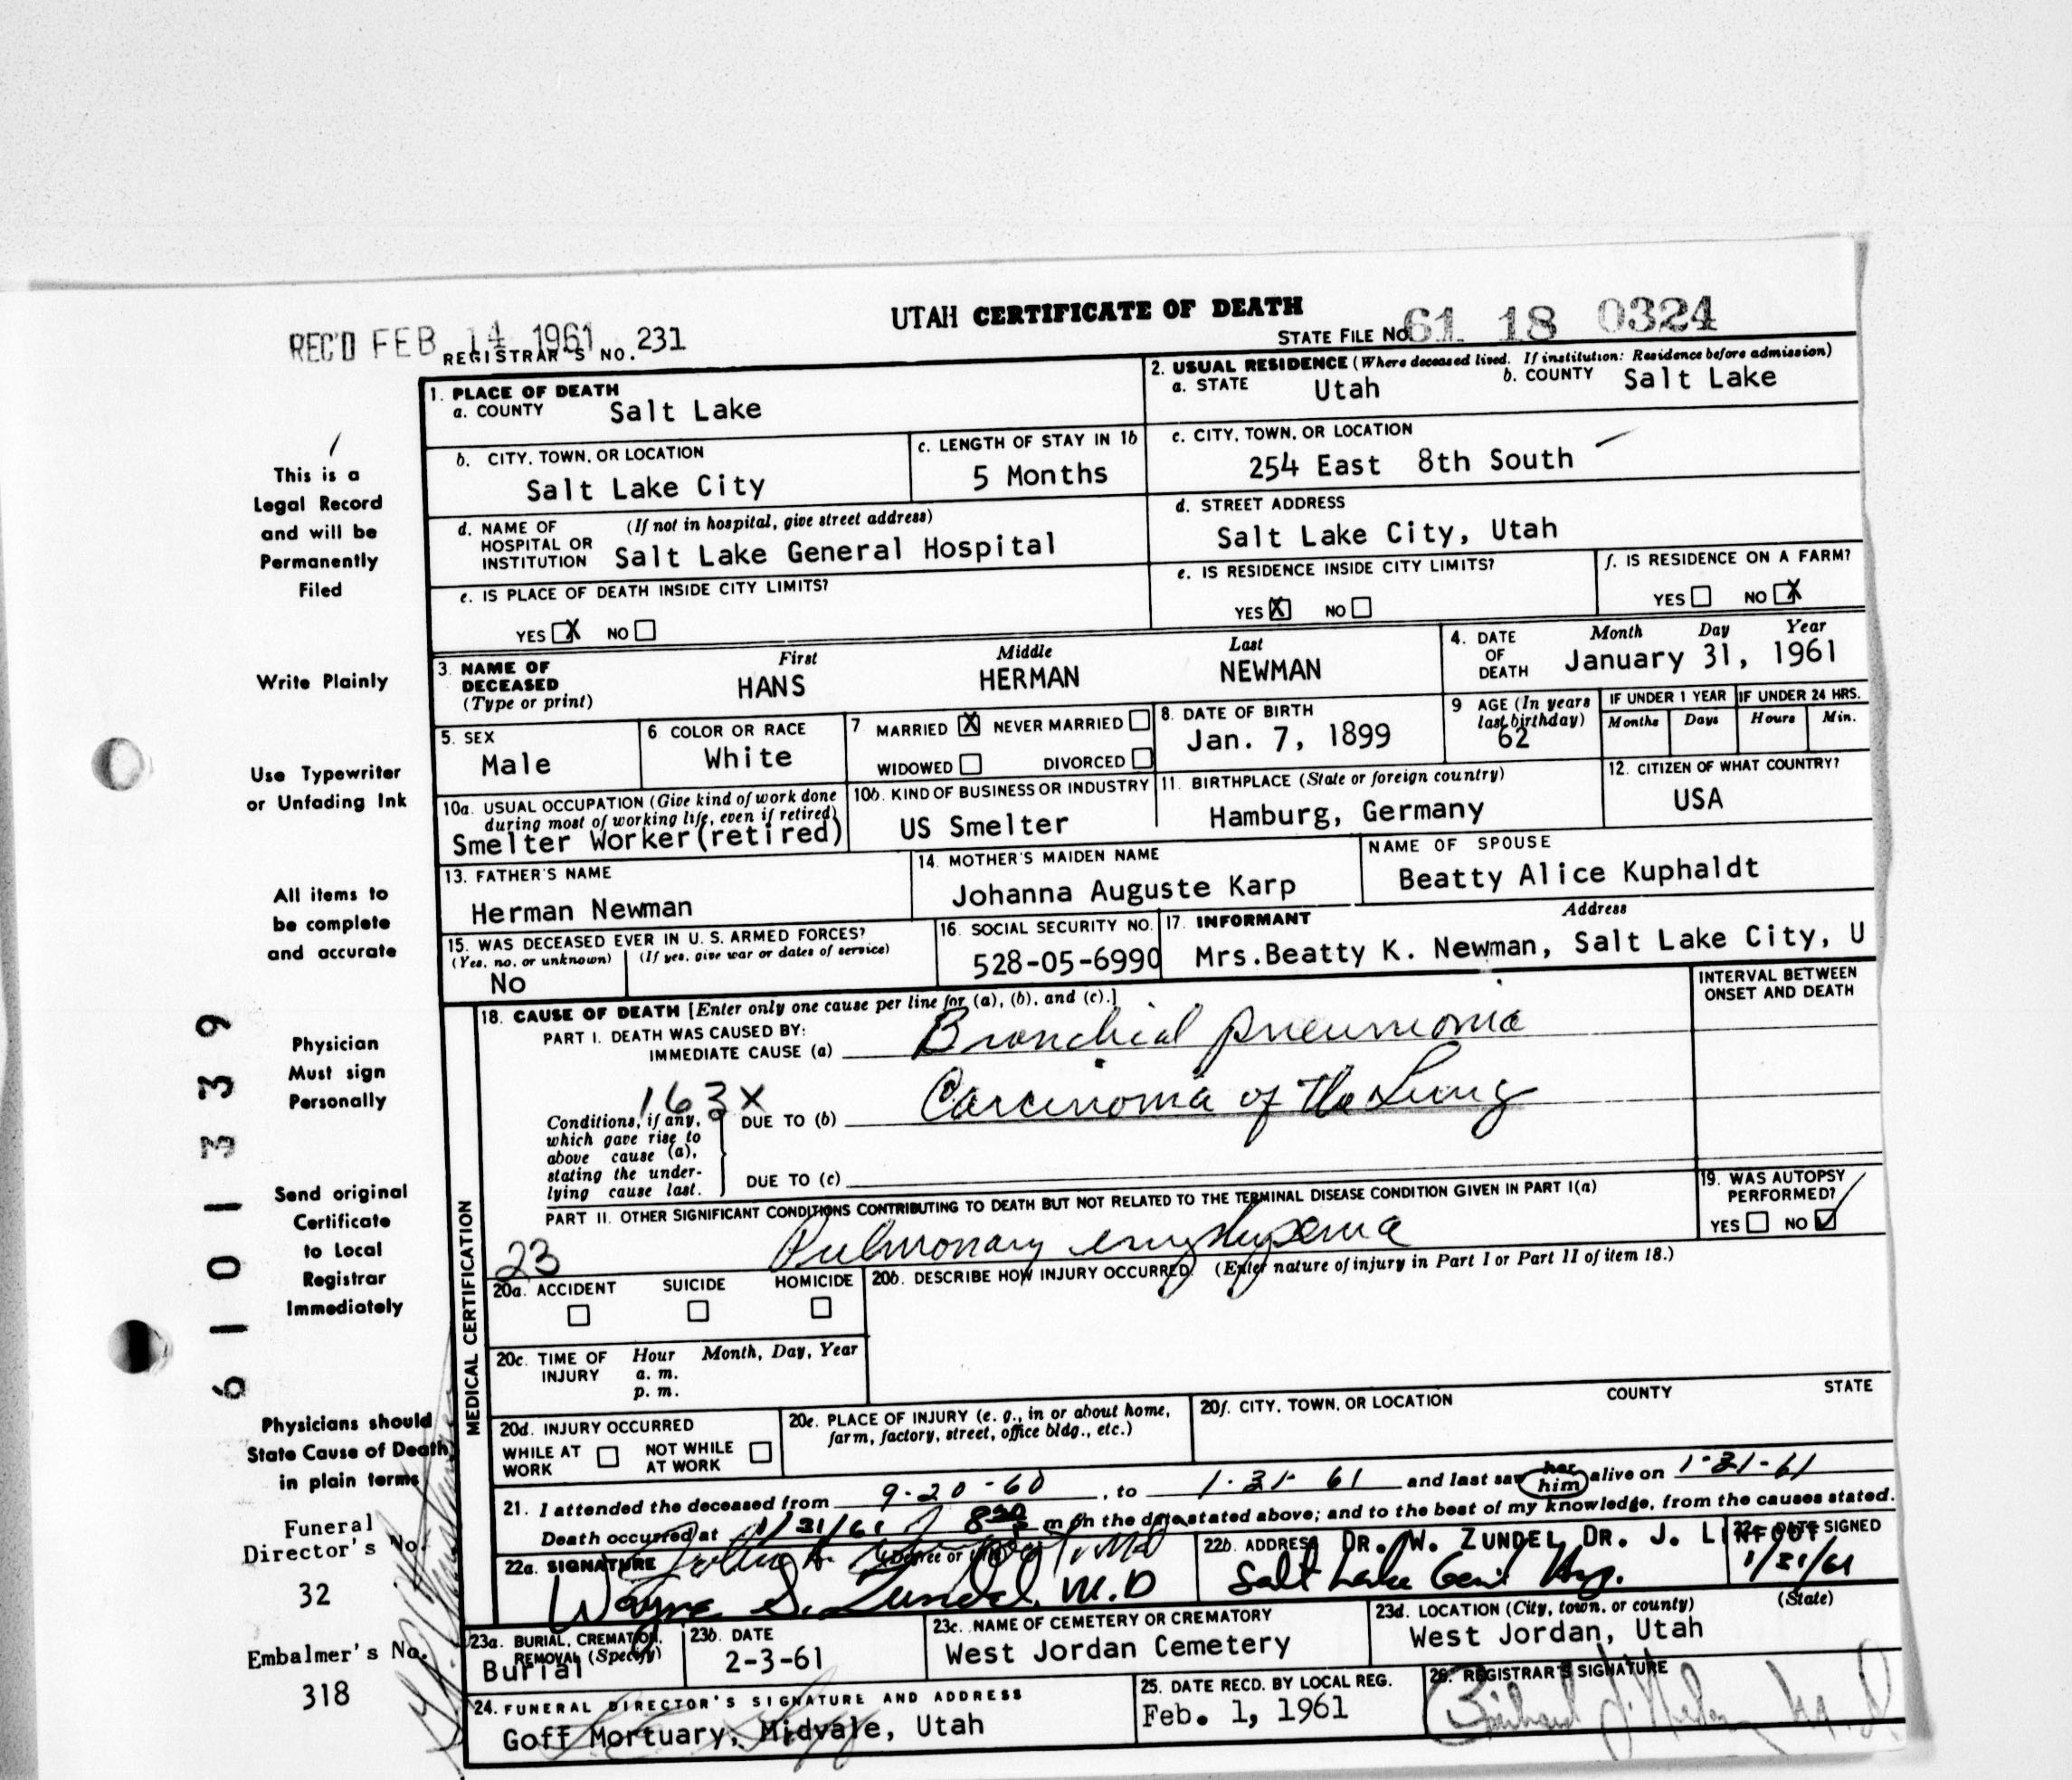 UTAH CERTIFICATE OF DEATH
REC'D FEB 14 1961
REGISTRAR'S NO. 231
STATE FILE NO. 61 18 0324
1. PLACE OF DEATH
a. COUNTY Salt Lake
2. USUAL RESIDENCE (Where deceased lived. If institution: Residence before admission)
a. STATE Utah b. COUNTY Salt Lake
b. CITY, TOWN, OR LOCATION
Salt Lake City
c. LENGTH OF STAY IN 1b
5 Months
c. CITY, TOWN, OR LOCATION
254 East 8th South
d. NAME OF HOSPITAL OR INSTITUTION (If not in hospital, give street address)
Salt Lake General Hospital
d. STREET ADDRESS
Salt Lake City, Utah
e. IS PLACE OF DEATH INSIDE CITY LIMITS?
YES X NO
e. IS RESIDENCE INSIDE CITY LIMITS?
YES X NO
f. IS RESIDENCE ON A FARM?
YES NO X
3. NAME OF DECEASED (Type or print)
First Middle Last
HANS HERMAN NEWMAN
4. DATE OF DEATH
Month Day Year
January 31, 1961
5. SEX
Male
6. COLOR OR RACE
White
7. MARRIED X NEVER MARRIED
WIDOWED DIVORCED
8. DATE OF BIRTH
Jan. 7, 1899
9 AGE (In years last birthday)
62
IF UNDER 1 YEAR
Months Days
IF UNDER 24 HRS.
Hours Min.
10a. USUAL OCCUPATION (Give kind of work done during most of working life, even if retired)
Smelter Worker (retired)
10b. KIND OF BUSINESS OR INDUSTRY
US Smelter
11. BIRTHPLACE (State or foreign country)
Hamburg, Germany
12. CITIZEN OF WHAT COUNTRY?
USA
13. FATHER'S NAME
Herman Newman
14. MOTHER'S MAIDEN NAME
Johanna Auguste Karp
NAME OF SPOUSE
Beatty Alice Kuphaldt
15. WAS DECEASED EVER IN U. S. ARMED FORCES?
(Yes, no, or unknown) (If yes, give war or dates of service)
No
16. SOCIAL SECURITY NO.
528-05-6990
17. INFORMANT Address
Mrs.Beatty K. Newman, Salt Lake City, U
MEDICAL CERTIFICATION
18. CAUSE OF DEATH [Enter only one cause per line for (a), (b), and (c).]
INTERVAL BETWEEN ONSET AND DEATH
PART I. DEATH WAS CAUSED BY:
IMMEDIATE CAUSE (a) Bronchial pneumonia
163X
Conditions, if any, which gave rise to above cause (a), stating the underlying cause last.
DUE TO (b) Carcinoma of the Lung
DUE TO (c)
PART II. OTHER SIGNIFICANT CONDITIONS CONTRIBUTING TO DEATH BUT NOT RELATED TO THE TERMINAL DISEASE CONDITION GIVEN IN PART I(a)
23 Pulmonary emphysema
19. WAS AUTOPSY PERFORMED?
YES NO ✓
20a. ACCIDENT SUICIDE HOMICIDE
20b. DESCRIBE HOW INJURY OCCURRED. (Enter nature of injury in Part I or Part II of item 18.)
20c. TIME OF INJURY
Hour Month, Day, Year
a. m.
p. m.
20d. INJURY OCCURRED
WHILE AT WORK NOT WHILE AT WORK
20e. PLACE OF INJURY (e. g., in or about home, farm, factory, street, office bldg., etc.)
20f. CITY, TOWN, OR LOCATION COUNTY STATE
21. I attended the deceased from 9-20-60, to 1-31-61 and last saw her him alive on 1-31-61
Death occurred at 1/31/61 8 30 m on the date stated above; and to the best of my knowledge, from the causes stated.
22a. SIGNATURE (Degree or title)
Wayne S. Zundel, M.D
22b. ADDRESS DR. W. ZUNDEL, DR. J. LINFOOT
Salt Lake Gen'l Hosp.
22c. DATE SIGNED
1/31/61
23a. BURIAL, CREMATION, REMOVAL (Specify)
Burial
23b. DATE
2-3-61
23c. NAME OF CEMETERY OR CREMATORY
West Jordan Cemetery
23d. LOCATION (City, town, or county) (State)
West Jordan, Utah
24. FUNERAL DIRECTOR'S SIGNATURE AND ADDRESS
Goff Mortuary, Midvale, Utah
25. DATE RECD. BY LOCAL REG.
Feb. 1, 1961
26. REGISTRAR'S SIGNATURE
This is a
Legal Record
and will be
Permanently
Filed
Write Plainly
Use Typewriter
or Unfading Ink
All items to
be complete
and accurate
Physician
Must sign
Personally
Send original
Certificate
to Local
Registrar
Immediately
Physicians should
State Cause of Death
in plain terms
Funeral
Director's No.
32
Embalmer's No.
318
6101339